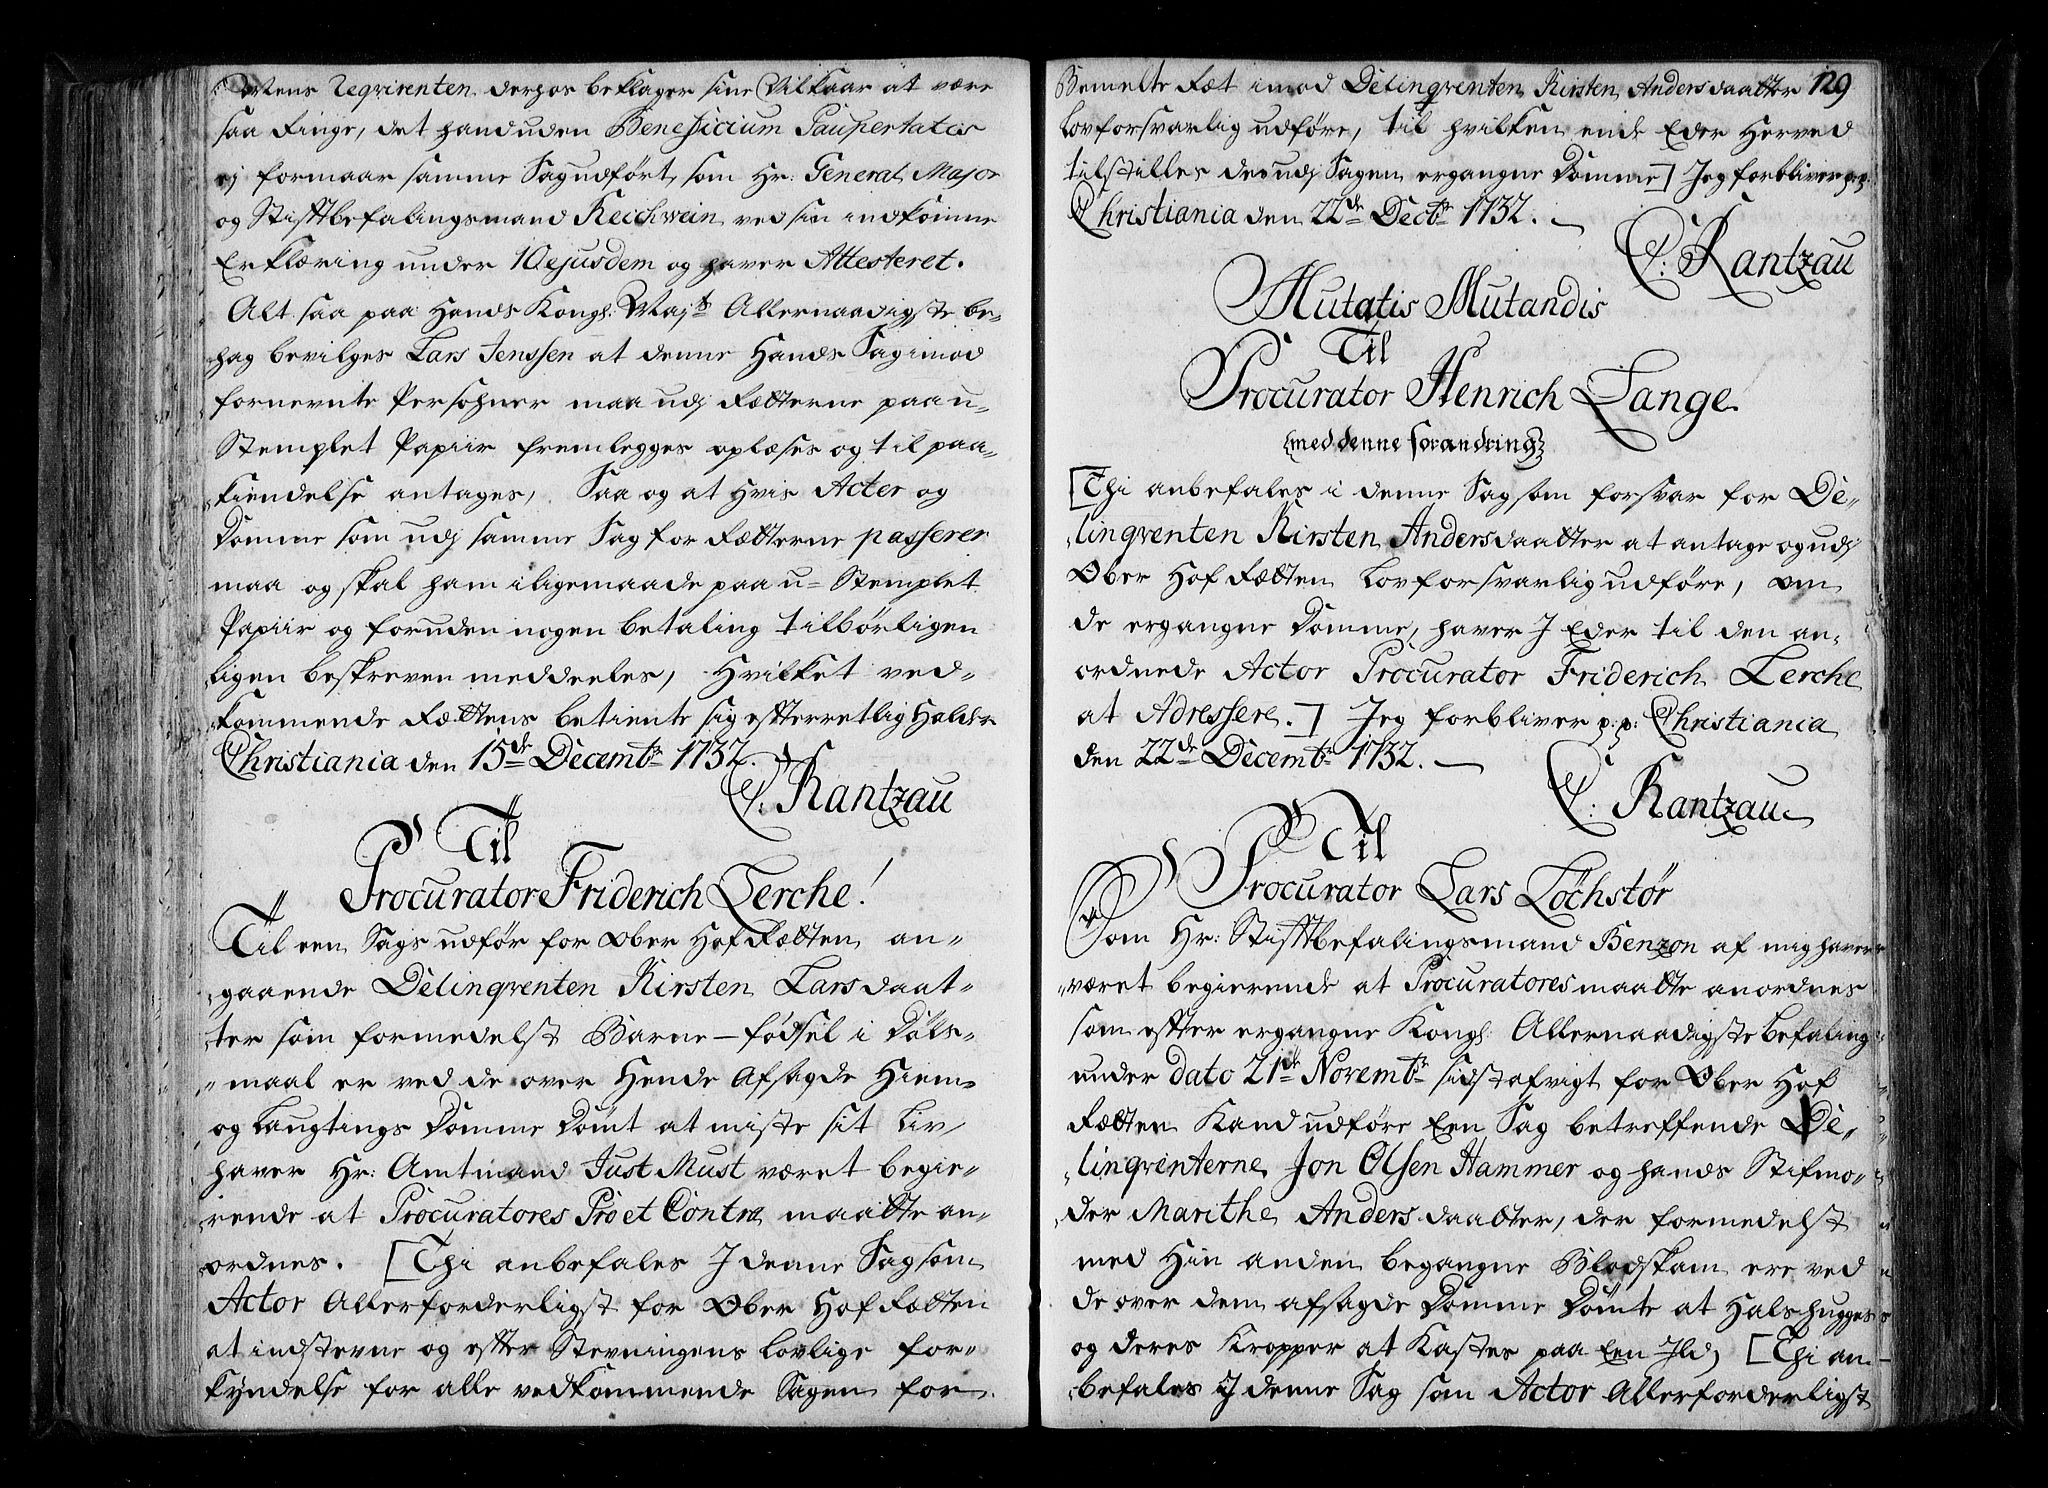 Mens Reqvirenten derhos beklager sine Vilkaar at være
saa Ringe, det hand uden Beneficium Paupertatis
ej formaar samme Sag udført, som Hr: General Major
og Stiftbefalingsmand Reichwein ved sin indkomne
Erklæring under 10 ejusdem og haver Attesteret.
Alt saa paa Hands Kongl: Majts Allernaadigste be-
hag bevilges Lars Jenssen at denne Hands Sag imod
fornevnte Persohner maa udj Rætterne paa u-
Stemplet Papiir fremlegges oplæses og til paa-
kiendelse antages, Saa og at Hvis Acter og
Domme som udj samme Sag for Rætterne passerer
maa og skal ham iligemaade paa u- Stemplet
Papiir og foruden nogen betaling tilbørligen
ligen beskreven meddeeles, Hvilket ved-
kommende Rættens betiente sig efterretlig Holder
Christiania den 15de Decembr 1732.
C: Rantzau
Til
Procurator Friderich Lerche!
Til een Sags udfør for Ober Hof Rætten an-
gaaende Delinqventen Kirsten Larsdaat-
ter som formedelst Barne-fødsel i Døls-
maal er ved de over Hende Afsagde Hiem-
og Laugtings Domme Dømt at miste sit Liv,
haver Hr: Amtmand Just Must været begie-
rende at Procuratores Pro et Contra maatte an-
ordnes. [Thi anbefales I denne Sag som
Actor Allerforderligst for Ober Hof Rætten
at indstevne og efter Stevningens lovlige for-
kyndelse for alle vedkommende Sagen for
129
Bemelte Ræt imod Delinqventen Kirsten Andersdaatter
lovforsvarlig udføre, til hvilken ende Eder Herved
tilstilles de udj Sagen ergangne Domme] Jeg forbliver p:p:
Christiania den 22de Decbr 1732.
C: Rantzau
Mutatis Mutandis
Til
Procurator Henrich Lange.
{med denne forandring}
[Thi anbefales i denne Sag som forsvar for De-
linqventen Kirsten Andersdaatter at antage og udj
Ober Hof Rætten Lovforsvarlig udføre, om
de ergangne Domme, haver I Eder til den an-
ordnede Actor Procurator Friderich Lerche
at Adressere.] Jeg forbliver p:p: Christiania
den 22de Decembr 1732.
C: Rantzau
Til
Procurator Lars Løchstør
Som Hr: Stiftbefalingsmand Benzon af mig haver
været begierende at Procuratores maatte anordnes
som efter ergangne Kongl: Allernaadigste Befaling
under dato 21de Novembr sidst afvigt for Ober Hof
Rætten Kand udføre Een Sag betreffende De-
linqventerne Jon Olsen Hammer og hands Stifmo-
der Marithe Andersdaatter, der formedelst
med Hin anden begangne Blodskam ere ved
de over dem afsagde Domme Dømte at Halshugges
og deres Kropper at Kastes paa Een Ild, [Thi an-
befales I denne Sag som Actor Allerforderligst